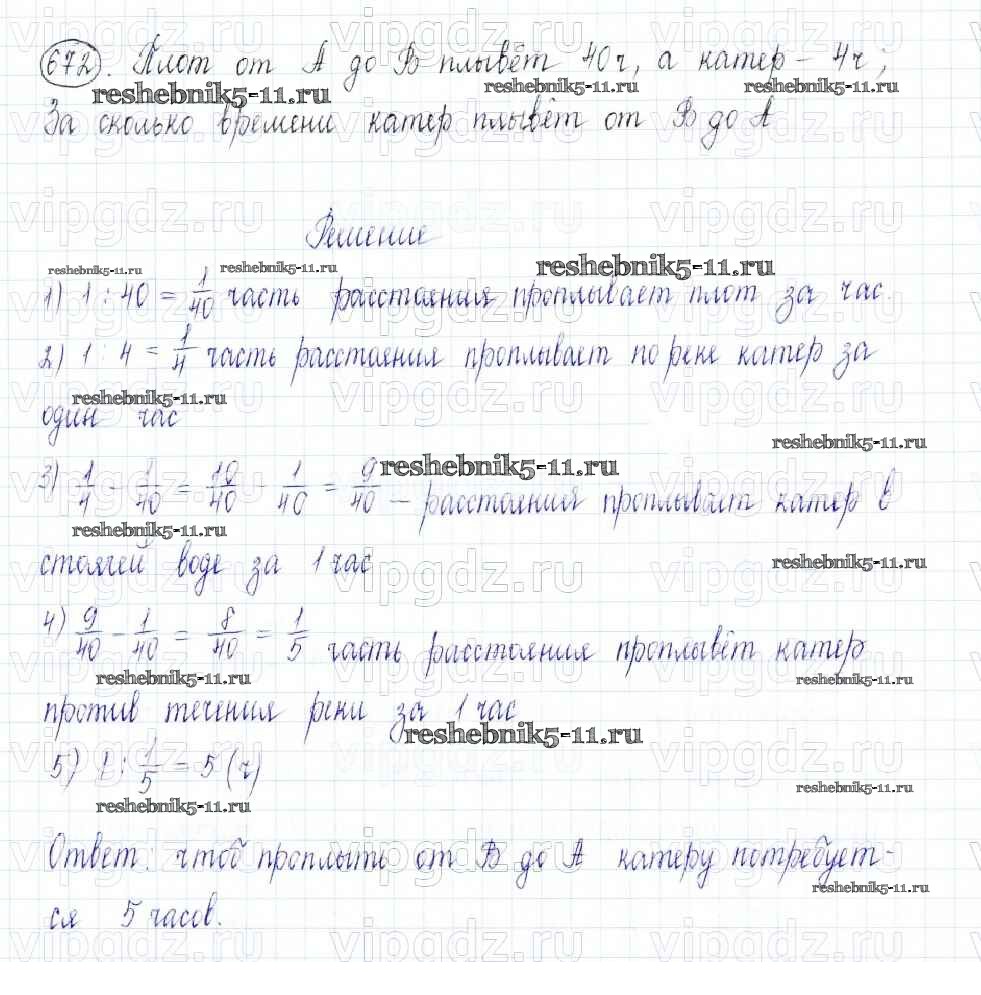 672. Плот от А до В плывёт 40ч, а катер – 4ч;
reshebnik5-11.ru reshebnik5-11.ru reshebnik5-11.ru
За сколько времени катер плывёт от В до А
vipgdz.ru vipgdz.ru vipgdz.ru
Решение
reshebnik5-11.ru reshebnik5-11.ru reshebnik5-11.ru
1) 1 : 40 = 1/40 часть расстояния проплывает плот за час.
2) 1 : 4 = 1/4 часть расстояния проплывает по реке катер за
reshebnik5-11.ru
один час
reshebnik5-11.ru
3) 1/4 - 1/40 = 10/40 - 1/40 = 9/40 – расстояния проплывает катер в
reshebnik5-11.ru
reshebnik5-11.ru
стоячей воде за 1 час
reshebnik5-11.ru
4) 9/40 - 1/40 = 8/40 = 1/5 часть расстояния проплывёт катер
reshebnik5-11.ru reshebnik5-11.ru
против течения реки за 1 час
reshebnik5-11.ru
5) 1 : 1/5 = 5 (ч)
reshebnik5-11.ru reshebnik5-11.ru
Ответ: чтоб проплыть от В до А катеру потребует-
reshebnik5-11.ru
ся 5 часов.
vipgdz.ru vipgdz.ru vipgdz.ru